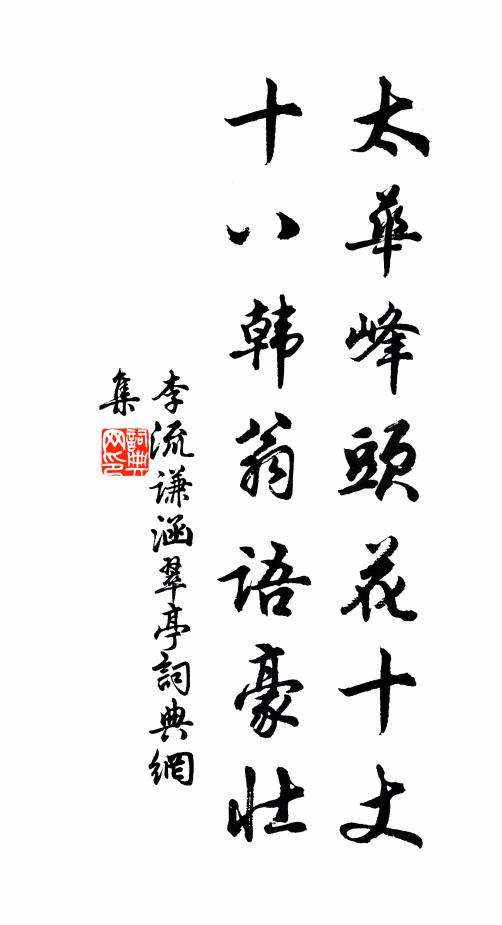 太華峰頭花十丈
十八韩翁語豪壮
李流謙涵翠亭詞典網
集
詞典網印